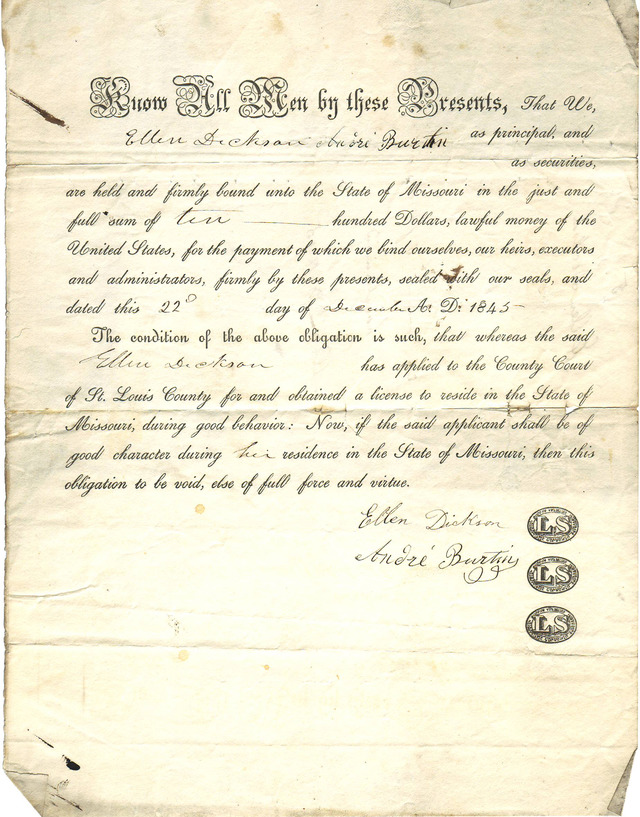 Know All Men by these Presents, That We,
Ellen Dickson André Burtin as principal, and
as securities,
are held and firmly bound unto the State of Missouri in the just and
full sum of ten hundred Dollars, lawful money of the
United States, for the payment of which we bind ourselves, our heirs, executors
and administrators, firmly by these presents, sealed with our seals, and
dated this 22d day of December A. D. 1845
The condition of the above obligation is such, that whereas the said
Ellen Dickson has applied to the County Court
of St. Louis County for and obtained a license to reside in the State of
Missouri, during good behavior: Now, if the said applicant shall be of
good character during her residence in the State of Missouri, then this
obligation to be void, else of full force and virtue.
Ellen Dickson LS
André Burtin LS
LS